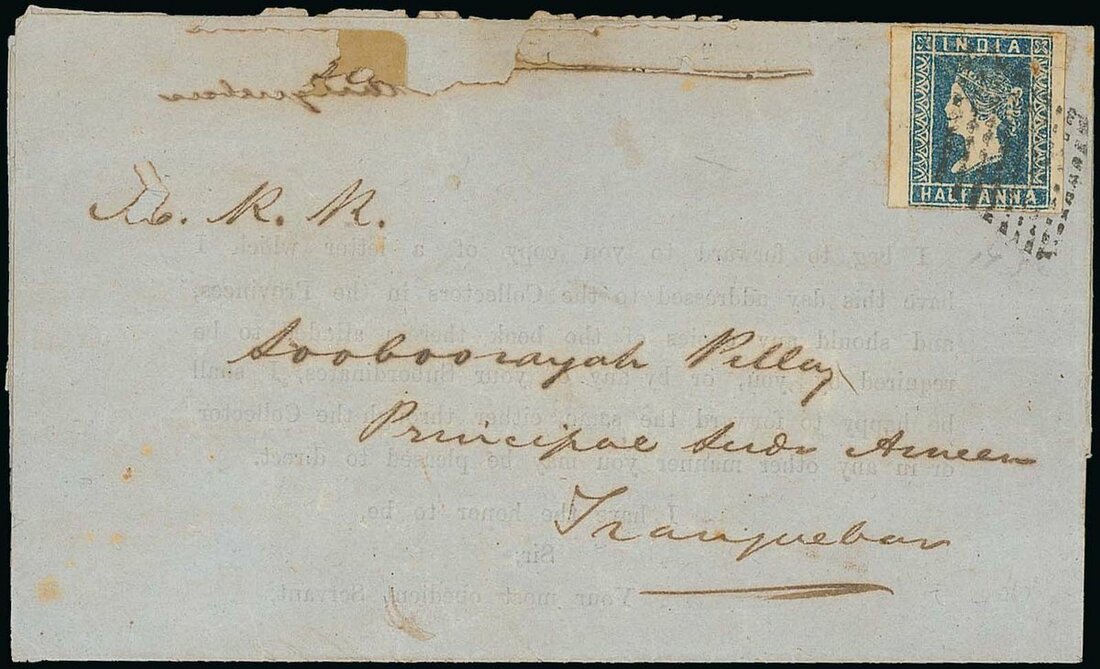 INDIA
HALF ANNA
To. M. R. R.
Sooboorayah Pillay
Principal Sudr Ameen
Tranquebar
I beg to forward to you copy of a letter which I
have this day addressed to the Collectors in the Provinces,
and should any copies of the book therein alluded to be
required by you, or by any of your Subordinates, I shall
be happy to forward the same either through the Collector
or in any other manner you may be pleased to direct.
I have the honor to be,
Sir,
Your most obedient Servant,